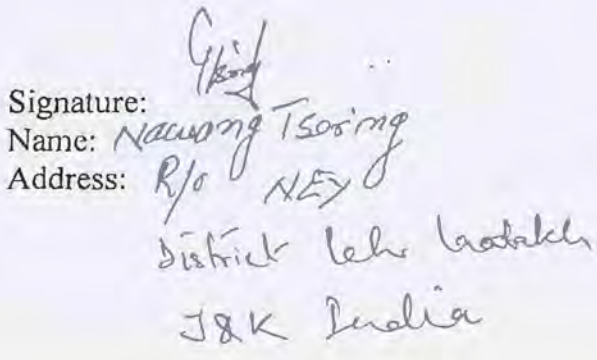 Signature:
Name: Nawang Tsering
Address: R/o NEY
District Leh Ladakh
J&K India